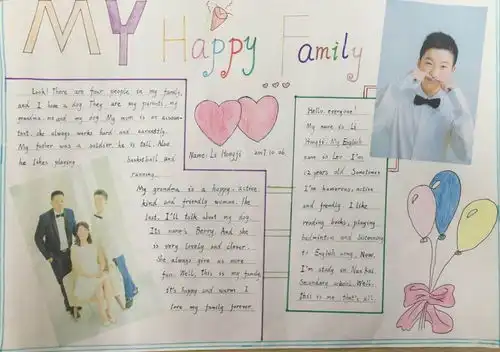 MY Happy Family
Look! There are four people in my family,
and I have a dog. They are my parents, my
grandma, me and my dog. My mom is an accoun-
tant. she always works hard and earnestly.
My father was a soldier, he is tall. Also
he likes playing basketball and
running.
My grandma is a happy, active
kind and friendly woman. the
last. I'll talk about my dog.
Its name's Berry. And she
is very lovely and clever.
She always give us more
fun. Well, this is my family
it's happy and warm. I
love my family forever.
Name: Li Hongji 2017.10.06
Hello, everyone!
My name is Li
Hongji. My English
name is Leo. I'm
12 years old. Sometimes
I'm humorous, active
and friendly. I like
reading books, playing
badminton and listenning
to English song. Now,
I'm study in Nan hai
Secondary school. Well,
this is me that's all.